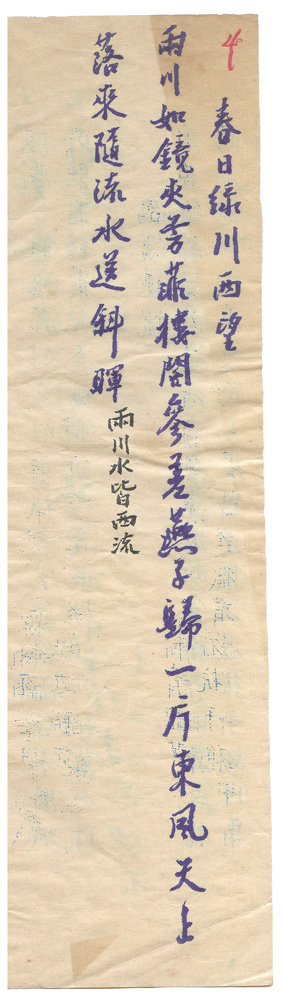 4
春日綠川西望
兩川如鏡夾芳菲樓閣參差燕子歸一片東風天上
落來隨流水送斜暉
兩川水皆西流